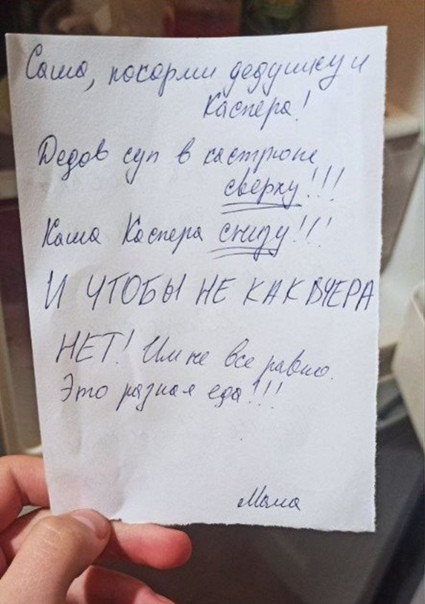 Саша, покорми дедушку и
Каспера!
Дедов суп в кастрюле
сверху!!!
Каша Каспера снизу!!!
И ЧТОБЫ НЕ КАК ВЧЕРА
НЕТ! Им не все равно.
Это разная еда!!!
Мама